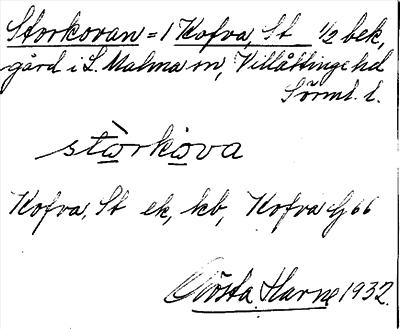 Storkovan = 1 Kofva, St 1/2 bek,
gård i L. Malma sn, Villåttinge hd
Sörml. l.
stòrkòva
Kofva, St ek, kb, Kofva G 66
Gösta Harne 1932.